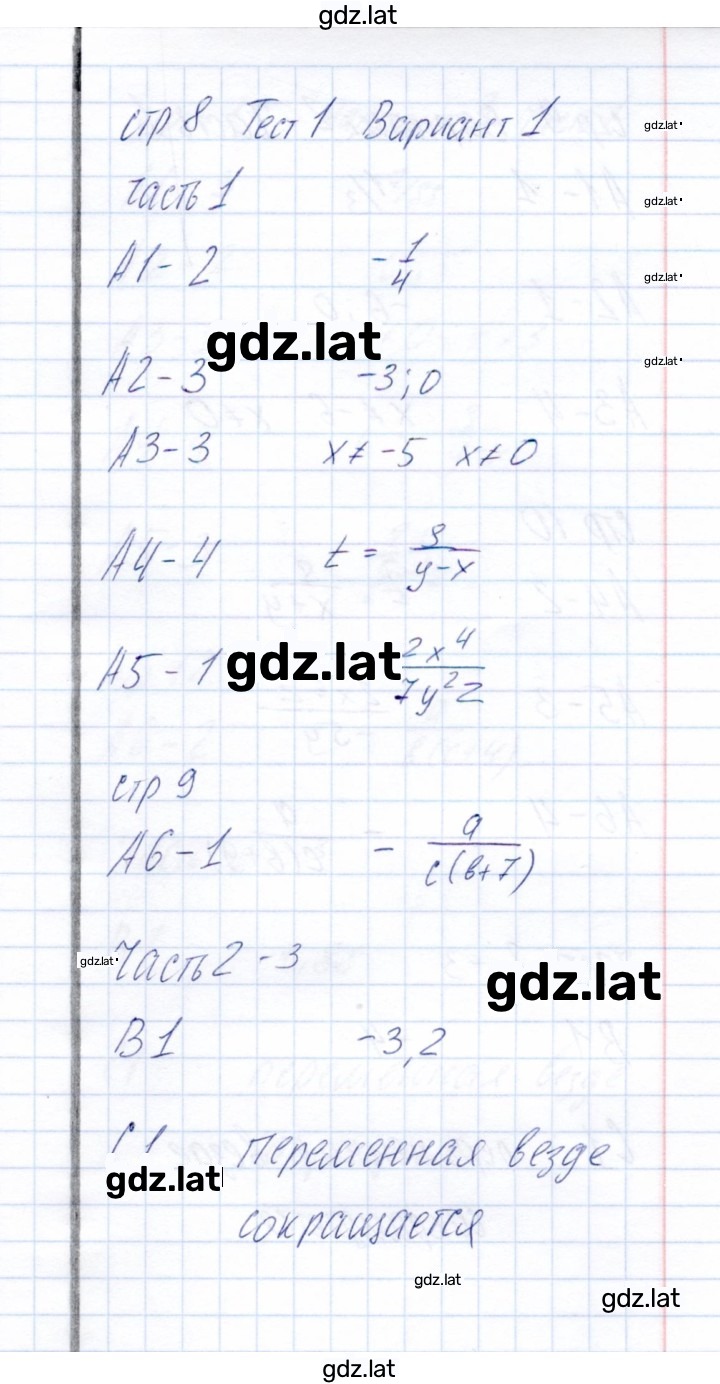 gdz.lat
стр 8 Тест 1 Вариант 1 gdz.lat
часть 1 gdz.lat
А1 - 2 -1/4 gdz.lat
gdz.lat
А2 - 3 -3; 0 gdz.lat
А3 - 3 x ≠ -5 x ≠ 0
А4 - 4 t = s/(y-x)
А5 - 1 gdz.lat 2x⁴/7y²z
стр 9
А6 - 1 - a/c(b+7)
gdz.lat Часть 2 - 3
gdz.lat
В1 -3,2
С1 переменная везде
gdz.lat
сокращается
gdz.lat
gdz.lat
gdz.lat